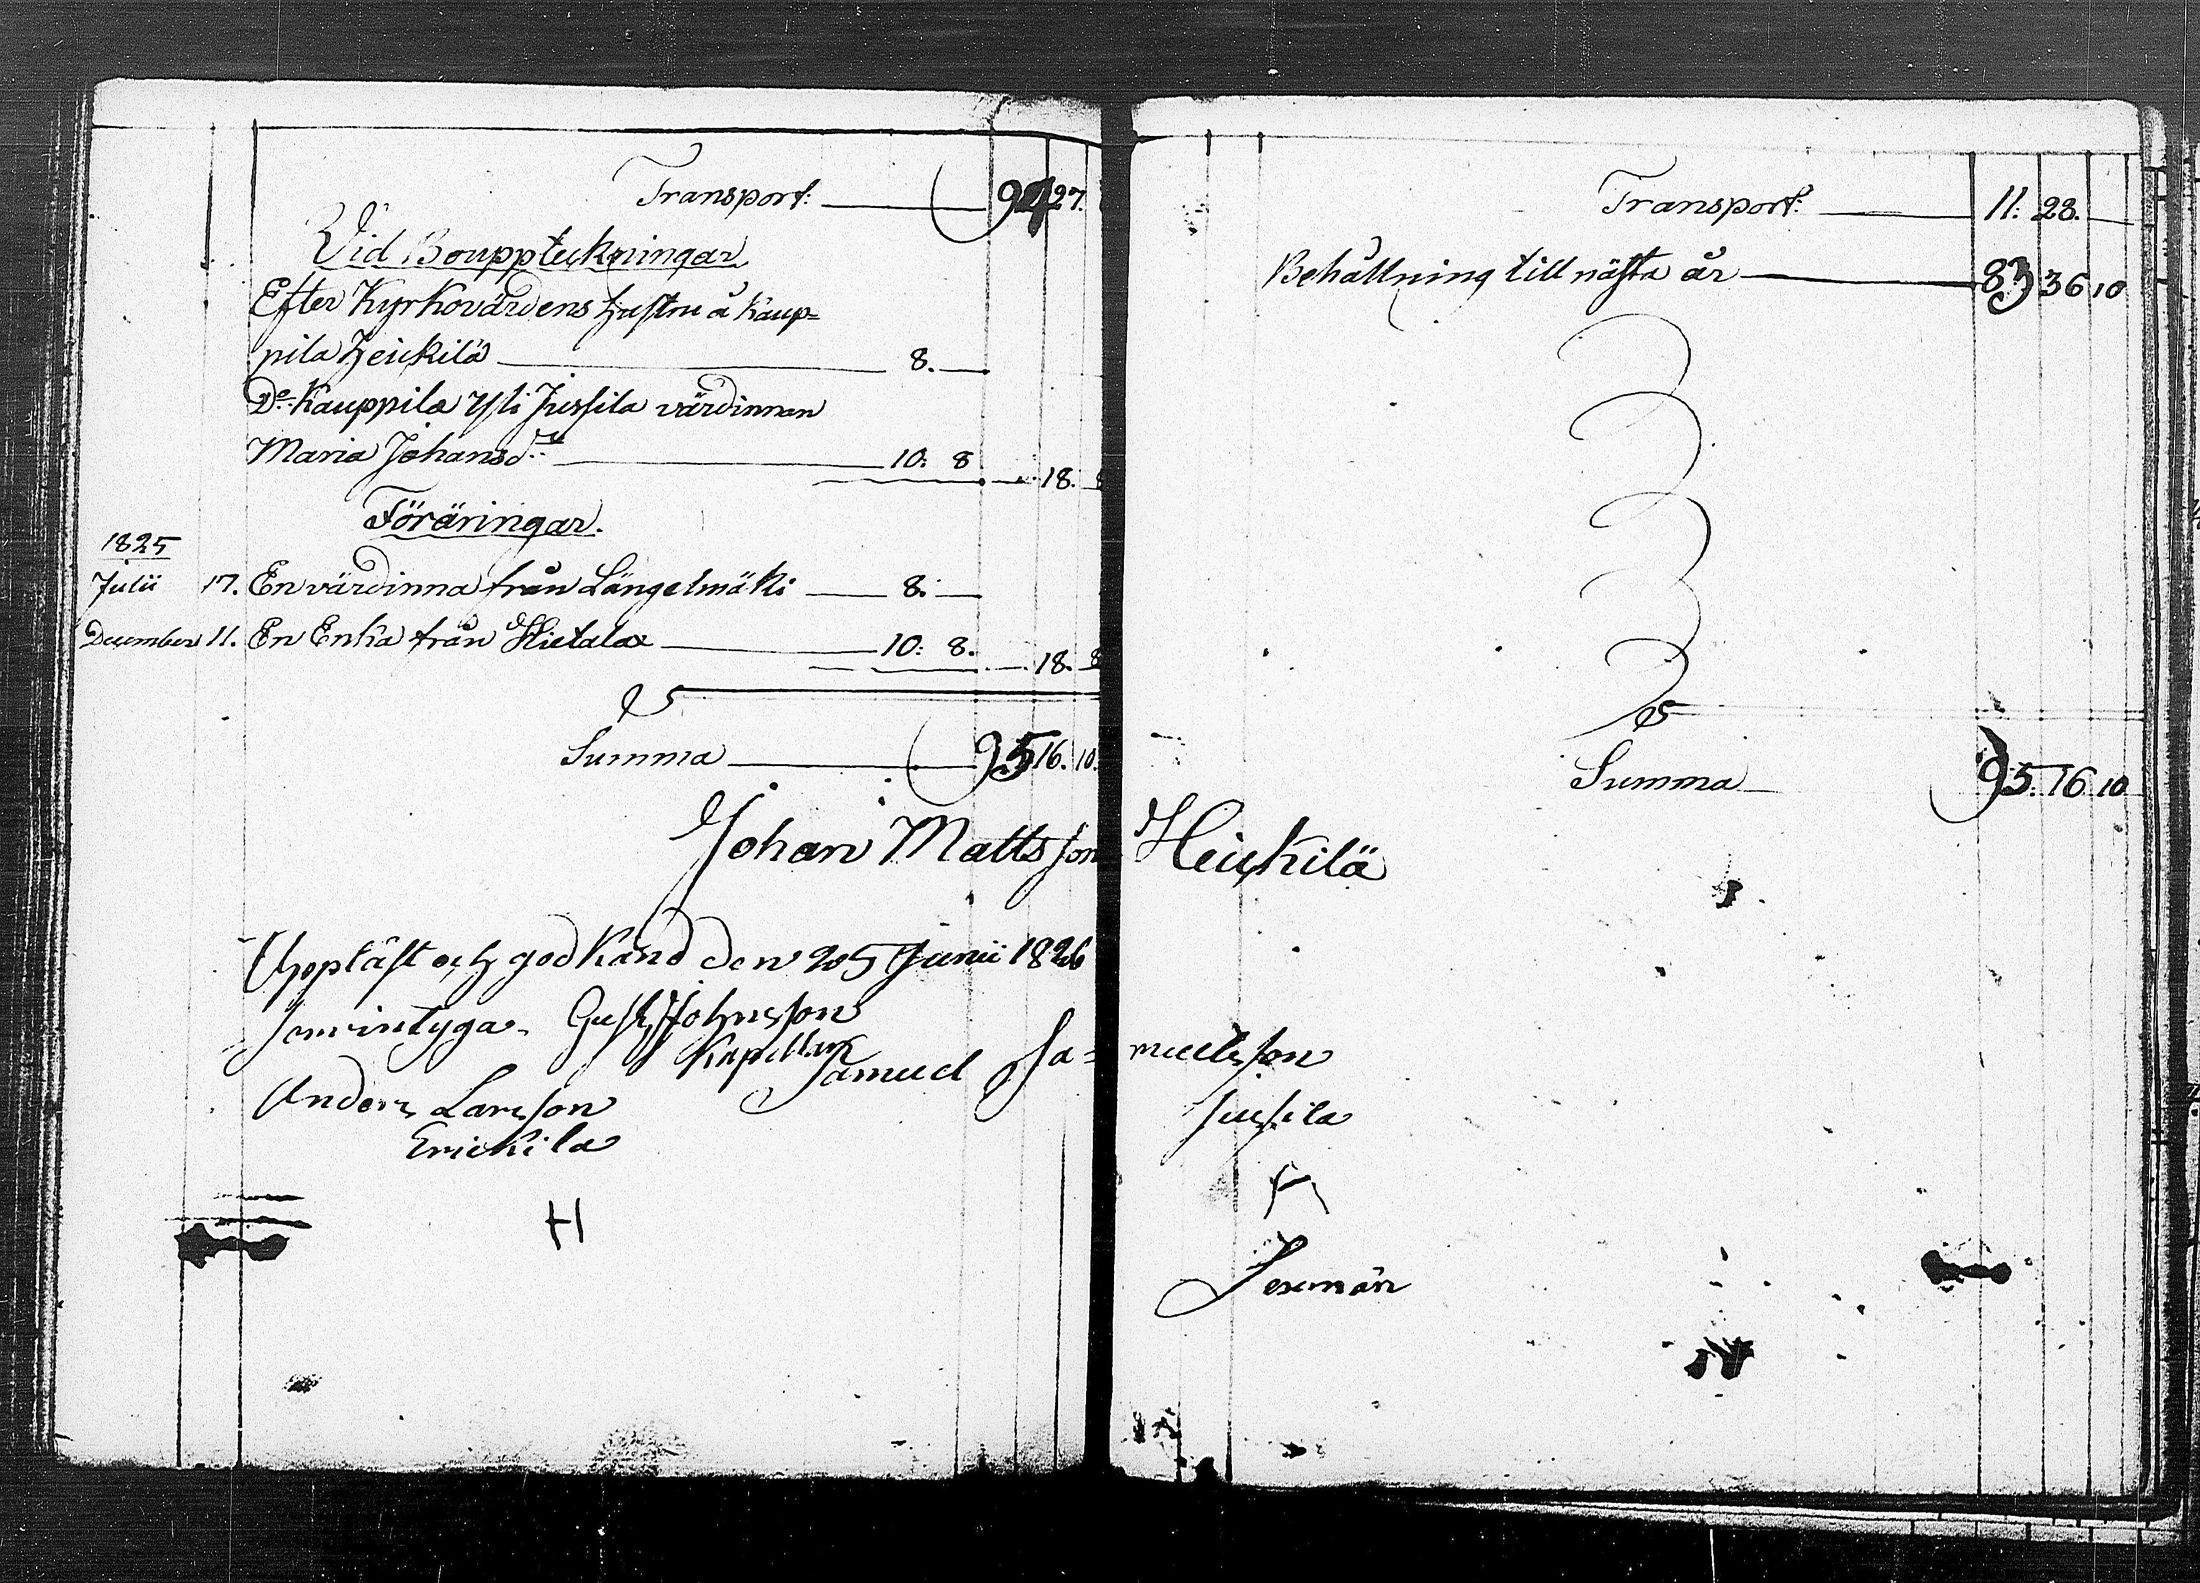 Transport: 94 27.
Vid Bouppteckningar
Efter Kyrkovärdens hustru å Kaup=
pila Heickilä 8.
Do Kauppila Yli Jussila värdinnan
Maria Johansdr 10: 8 18. 8
Föräringar.
1825
Julii 17. En värdinna från Längelmäki 8:
December 11. En Enka från Hietala 10: 8. 18. 8
Summa 95 16. 10.
Johan Mattsson Heickilä
Uppläst och godkänd den 25 Junii 1826
Gust Johnsson
Kapellan
Samuel Sa= muelsson
Jussila
Anders Larsson
Erickila
H
Transport: 11: 28.
Behållning till nästa år 83 36 10
Summa 95. 16 10